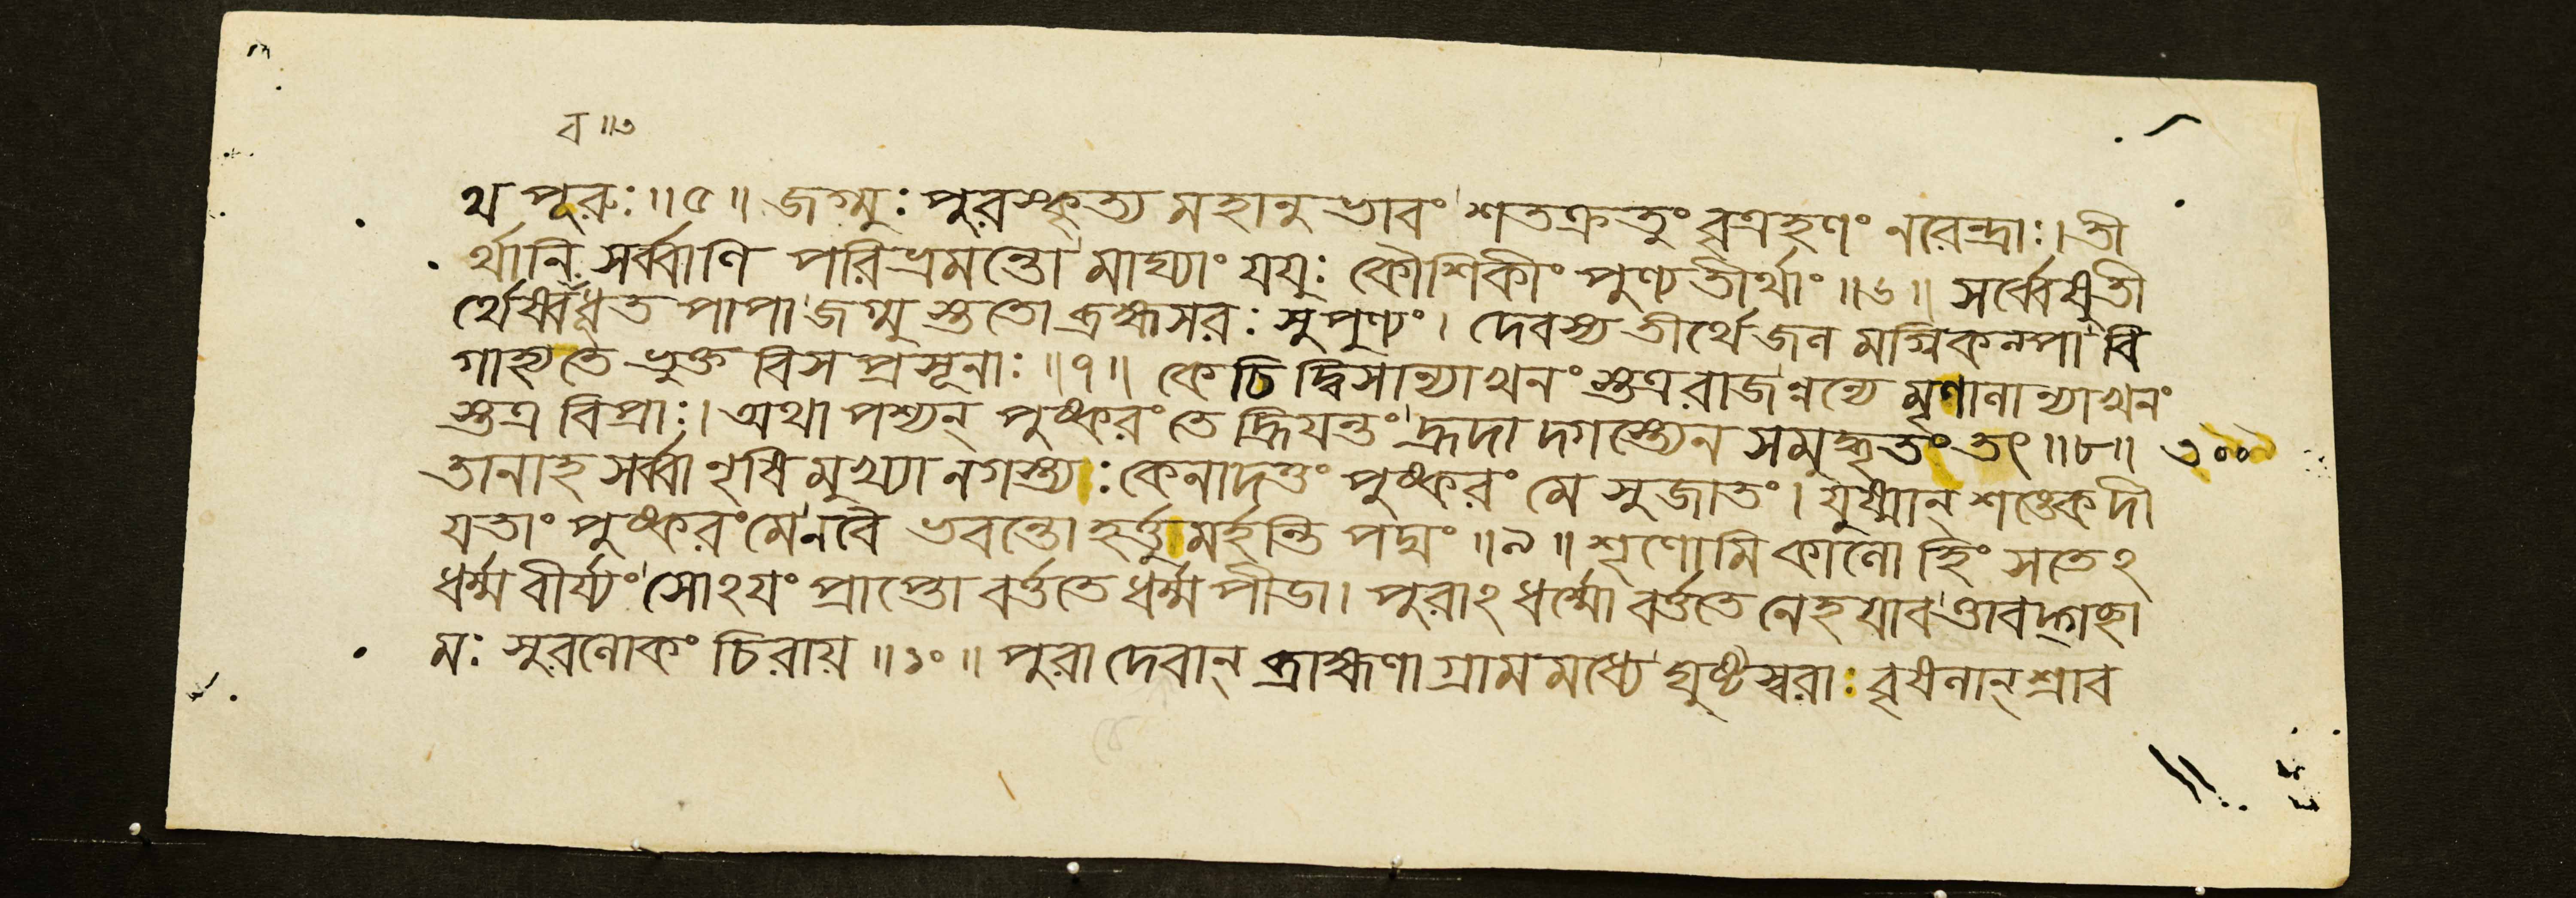 ব ॥৩
থ পূরুঃ ॥৫॥ জগ্মুঃ পুরস্কৃত্য মহানুভাবং শতক্রতুং বৃত্রহণং নরেন্দ্রাঃ। তী
র্থানি সর্ব্বাণি পরিভ্রমন্তো মাঘ্যাং যযুঃ কৌশিকীং পুণ্যতীর্থাং ॥৬॥ সর্ব্বেষুতী
র্থেষ্বধূত পাপা জগ্মু স্ততো ব্রহ্মসরঃ সুপুণ্যং। দেবস্য তীর্থে জল মগ্নিকল্পা বি
গাহ্যতে ভুক্ত বিস প্রসূনাঃ ॥৭॥ কেচিদ্বিসান্যাখনং স্তত্র রাজন্নন্যে মৃণালান্যাখনং
স্তত্র বিপ্রাঃ। অথা পশ্যন্ পুষ্করং তে হ্রিয়ন্তং হ্রদা দগস্ত্যেন সমুদ্ধৃতং তৎ ॥৮॥ ৩০০০
তানাহ সর্ব্বা নৃষিমুখ্যা নগস্ত্যঃ কেনাদত্তং পুষ্করং মে সুজাতং। যুষ্মান্ শঙ্কে দী
যতাং পুষ্করং মে নবৈ ভবন্তো হর্ত্তুমর্হন্তি পদ্মং ॥৯॥ শৃণোমি কালো হিংসতেঽ
ধর্ম্ম বীর্য্যং সোঽয়ং প্রাপ্তো বর্ত্ততে ধর্ম্মপীডা। পুরাঽধর্ম্মো বর্ত্ততে নেহ যাব ত্তাবদ্গচ্ছা
মঃ সুরলোকং চিরায় ॥১০॥ পুরা দেবান্ ব্রাহ্মণা গ্রামমধ্যে ঘুষ্টস্বরাঃ বৃষলান্ শ্রাব